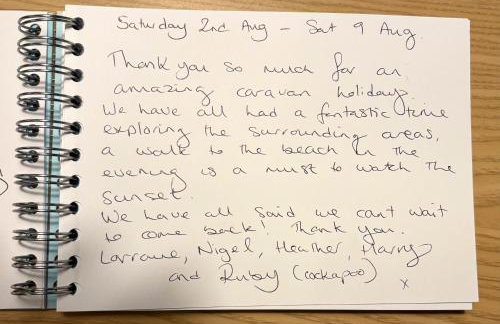 Saturday 2nd Aug - Sat 9 Aug.
Thank you so much for an
amazing caravan holiday.
We have all had a fantastic time
exploring the surrounding areas,
a walk to the beach in the
evening is a must to watch the
sunset.
We have all said we cant wait
to come back! Thank you.
Lorraine, Nigel, Heather, Harry
and Ruby (cockapoo) x